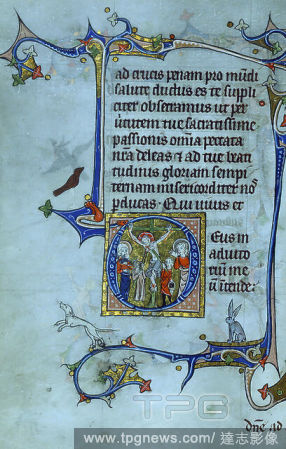 ad crucis penam pro mũdi
salute ductus es te suppli
citer obsecramus ut per
uirtutem tue sacratissime
passionis om̃ia peccata
nr̃a deleas ⁊ ad tue beati
tudinis gloriam sempi
ternam misericorditer nos
perducas. Qui uiuis et
Deus in
adiuto
riũ me
ũ intende
dñe ad
TPG
www.tpgnews.com/ 達志影像